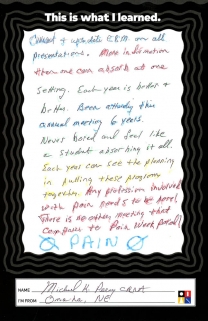 This is what I learned.
Current & uptodate EBM on all
presentations. More information
than one can absorb at one
setting. Each year is better &
better. Been attending this
annual meeting 6 years.
Never bored and feel like
a student absorbing it all.
Each year can see the planning
in pulling these programs
together. Any profession involved
with pain needs to be here!
There is no other meeting that
compares to Pain Week period!
PAIN
NAME: Michael H. CRNA
I'M FROM: Omaha, NE